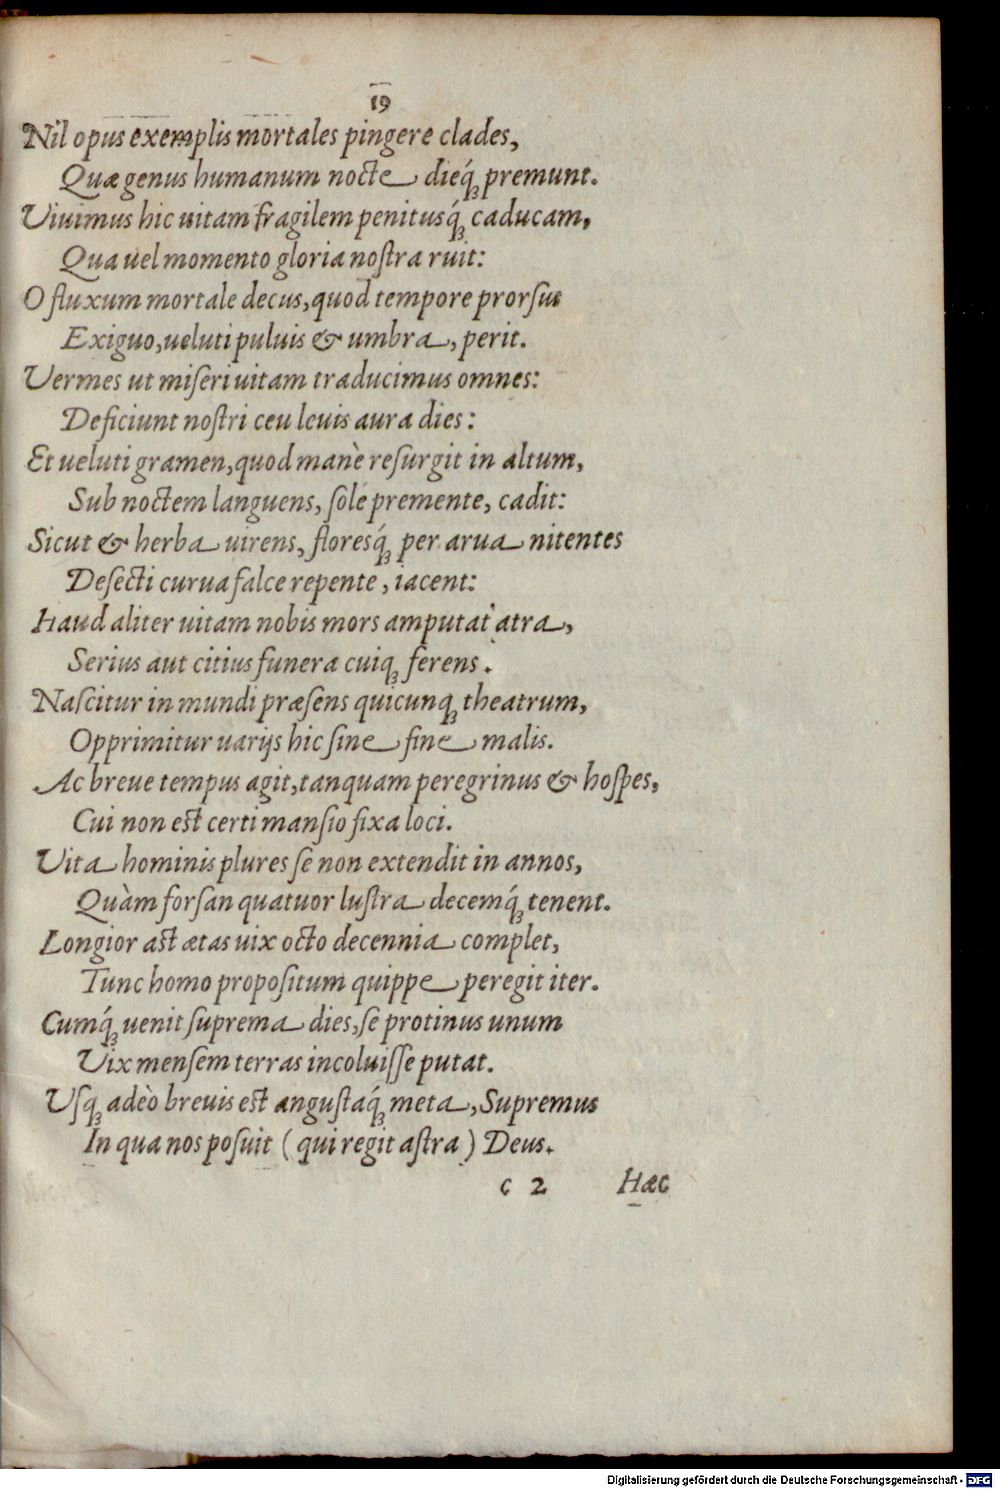 19
Nil opus exemplis mortales pingere clades,
Quæ genus humanum nocte dieq́ꝫ premunt.
Viuimus hic uitam fragilem penitusq́ꝫ caducam,
Qua uel momento gloria noſtra ruit:
O fluxum mortale decus, quod tempore prorſus
Exiguo, ueluti puluis & umbra, perit.
Vermes ut miſeri uitam traducimus omnes:
Deficiunt noſtri ceu leuis aura dies:
Et ueluti gramen, quod manè reſurgit in altum,
Sub noctem languens, ſole premente, cadit:
Sicut & herba uirens, floresq́ꝫ per arua nitentes
Deſecti curua falce repente, iacent:
Haud aliter uitam nobis mors amputat atra,
Serius aut citius funera cuiqꝫ ferens.
Naſcitur in mundi præſens quicunqꝫ theatrum,
Opprimitur uarijs hic ſine fine malis.
Ac breue tempus agit, tanquam peregrinus & hoſpes,
Cui non eſt certi manſio fixa loci.
Vita hominis plures ſe non extendit in annos,
Quàm forſan quatuor luſtra decemq́ꝫ tenent.
Longior aſt ætas uix octo decennia complet,
Tunc homo propoſitum quippe peregit iter.
Cumq́ꝫ uenit ſuprema dies, ſe protinus unum
Vix menſem terras incoluiſſe putat.
Vſqꝫ adeò breuis eſt anguſtaq́ꝫ meta, Supremus
In qua nos poſuit (qui regit aſtra) Deus.
c 2 Hæc
Digitalisierung gefördert durch die Deutsche Forschungsgemeinschaft - DFG